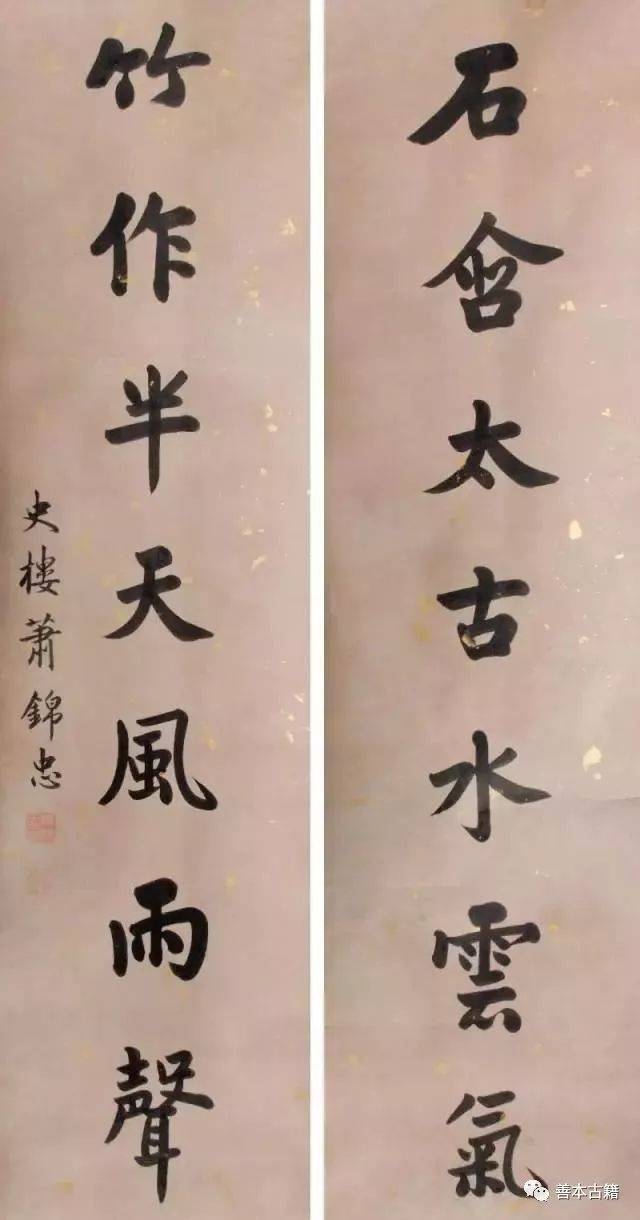 石含太古水雲氣
竹作半天風雨聲
史樓蕭錦忠
善本古籍